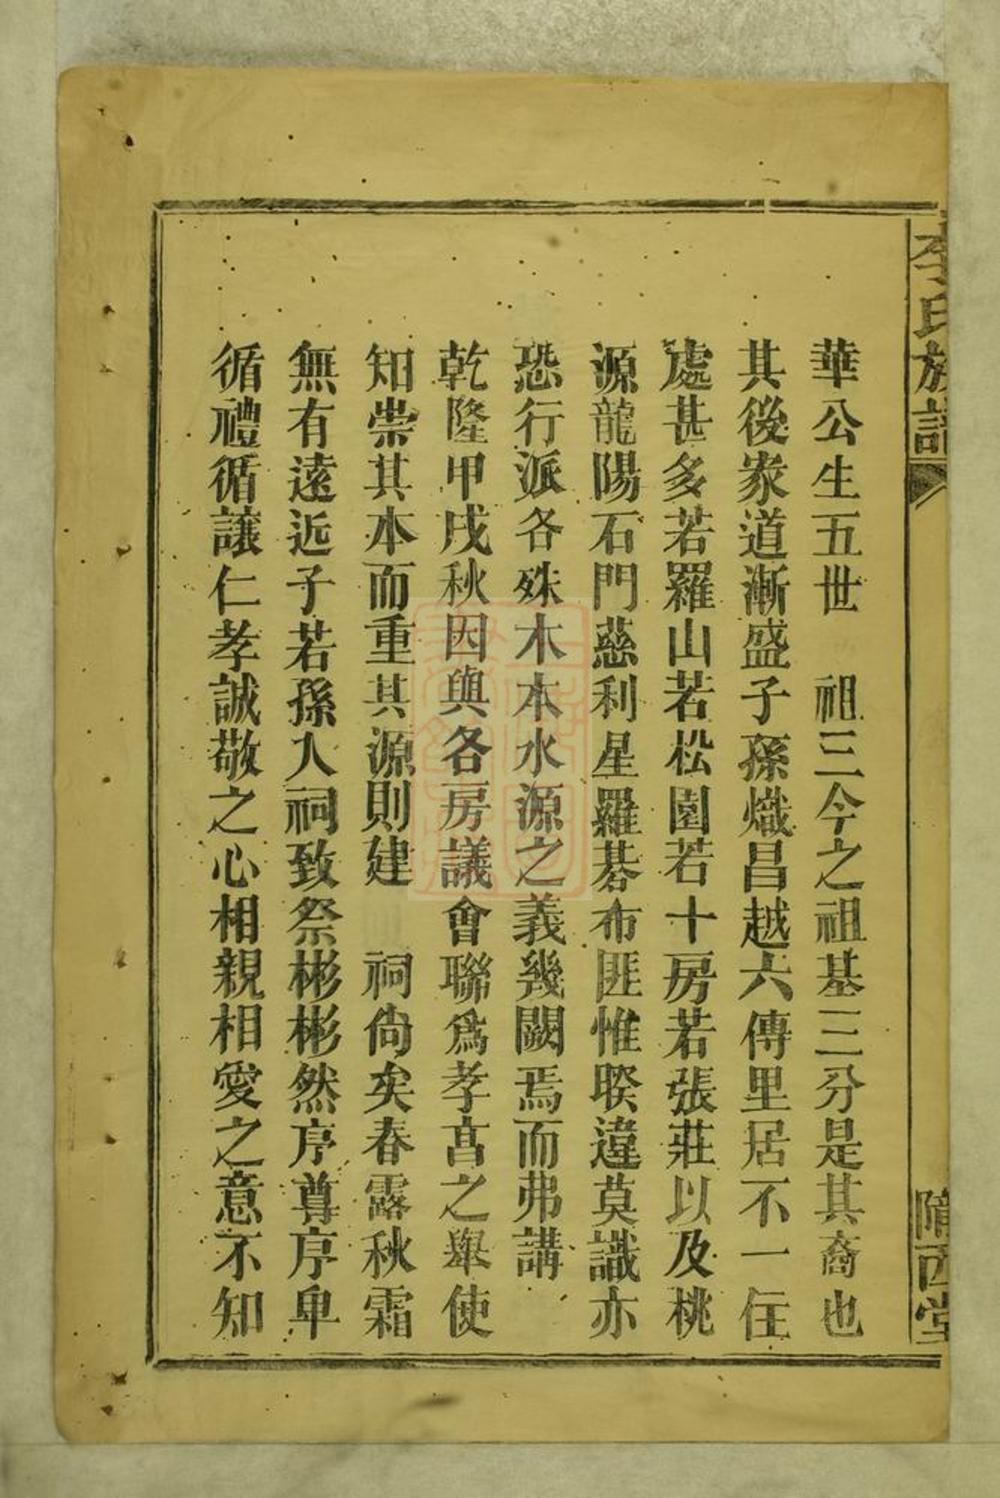 李氏族譜
隴西堂
華公生五世　祖三今之祖基三分是其裔也
其後家道漸盛子孫熾昌越六傳里居不一住
處甚多若羅山若松園若十房若張莊以及桃
源龍陽石門慈利星羅碁布匪惟暌違莫識亦
恐行派各殊木本水源之義幾闕焉而弗講
乾隆甲戌秋因與各房議會聯爲孝享之舉使
知崇其本而重其源則建　祠尚矣春露秋霜
無有遠近子若孫入祠致祭彬彬然序尊序卑
循禮循讓仁孝誠敬之心相親相愛之意不知